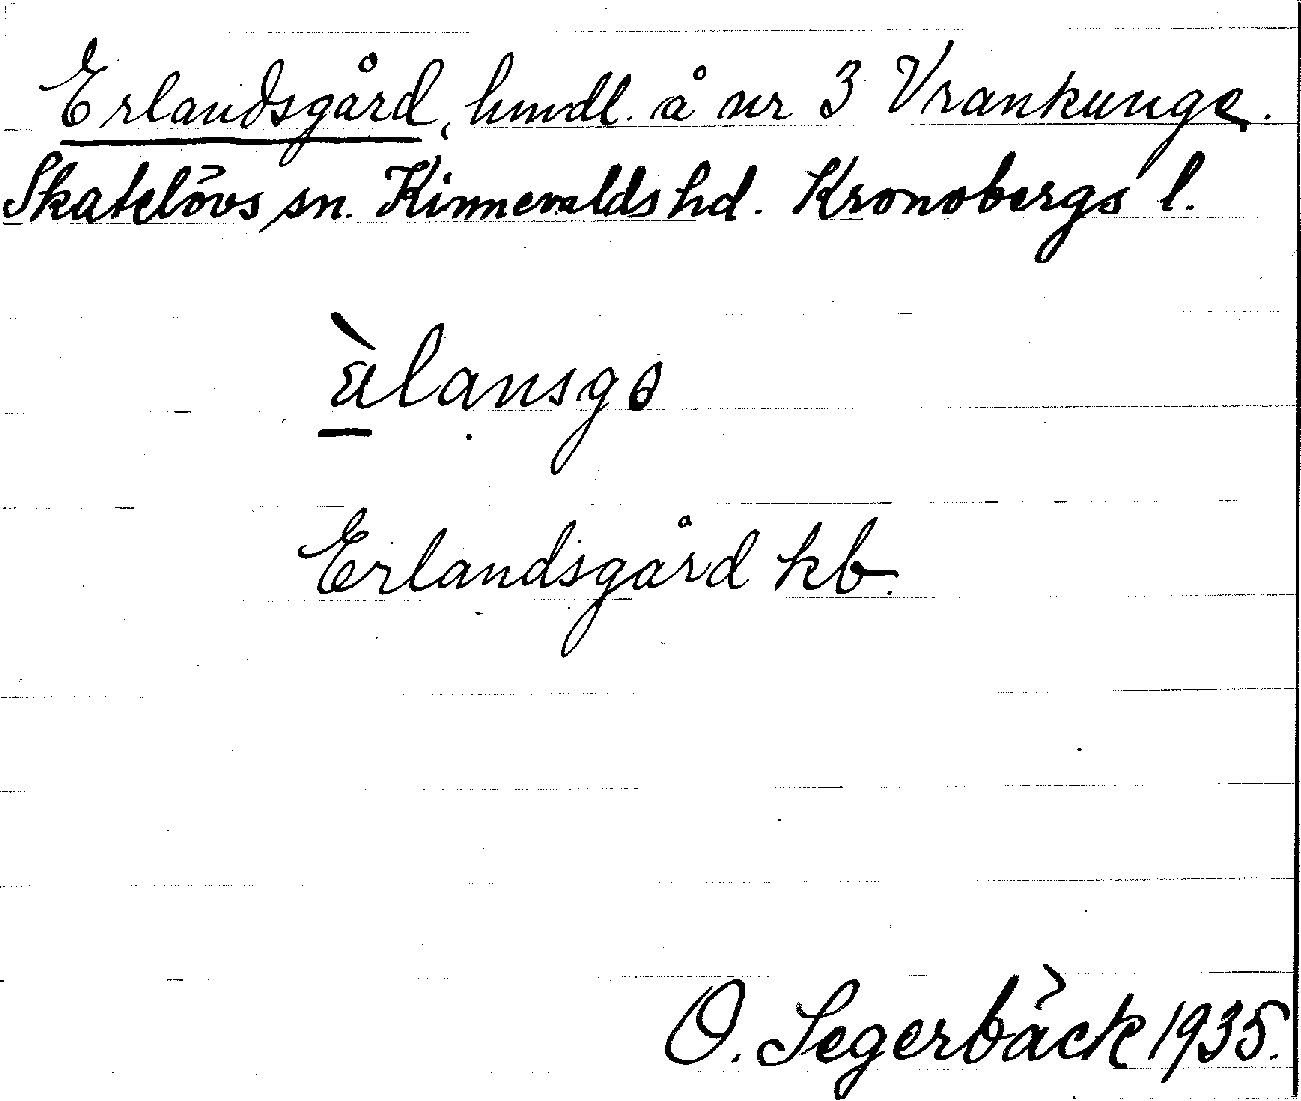 Erlandsgård, hmdl. å nr 3 Vrankunge.
Skatelövs sn. Kinnevalds hd. Kronobergs l.
älansgo
Erlandsgård kb.
O. Segerbäck 1935.